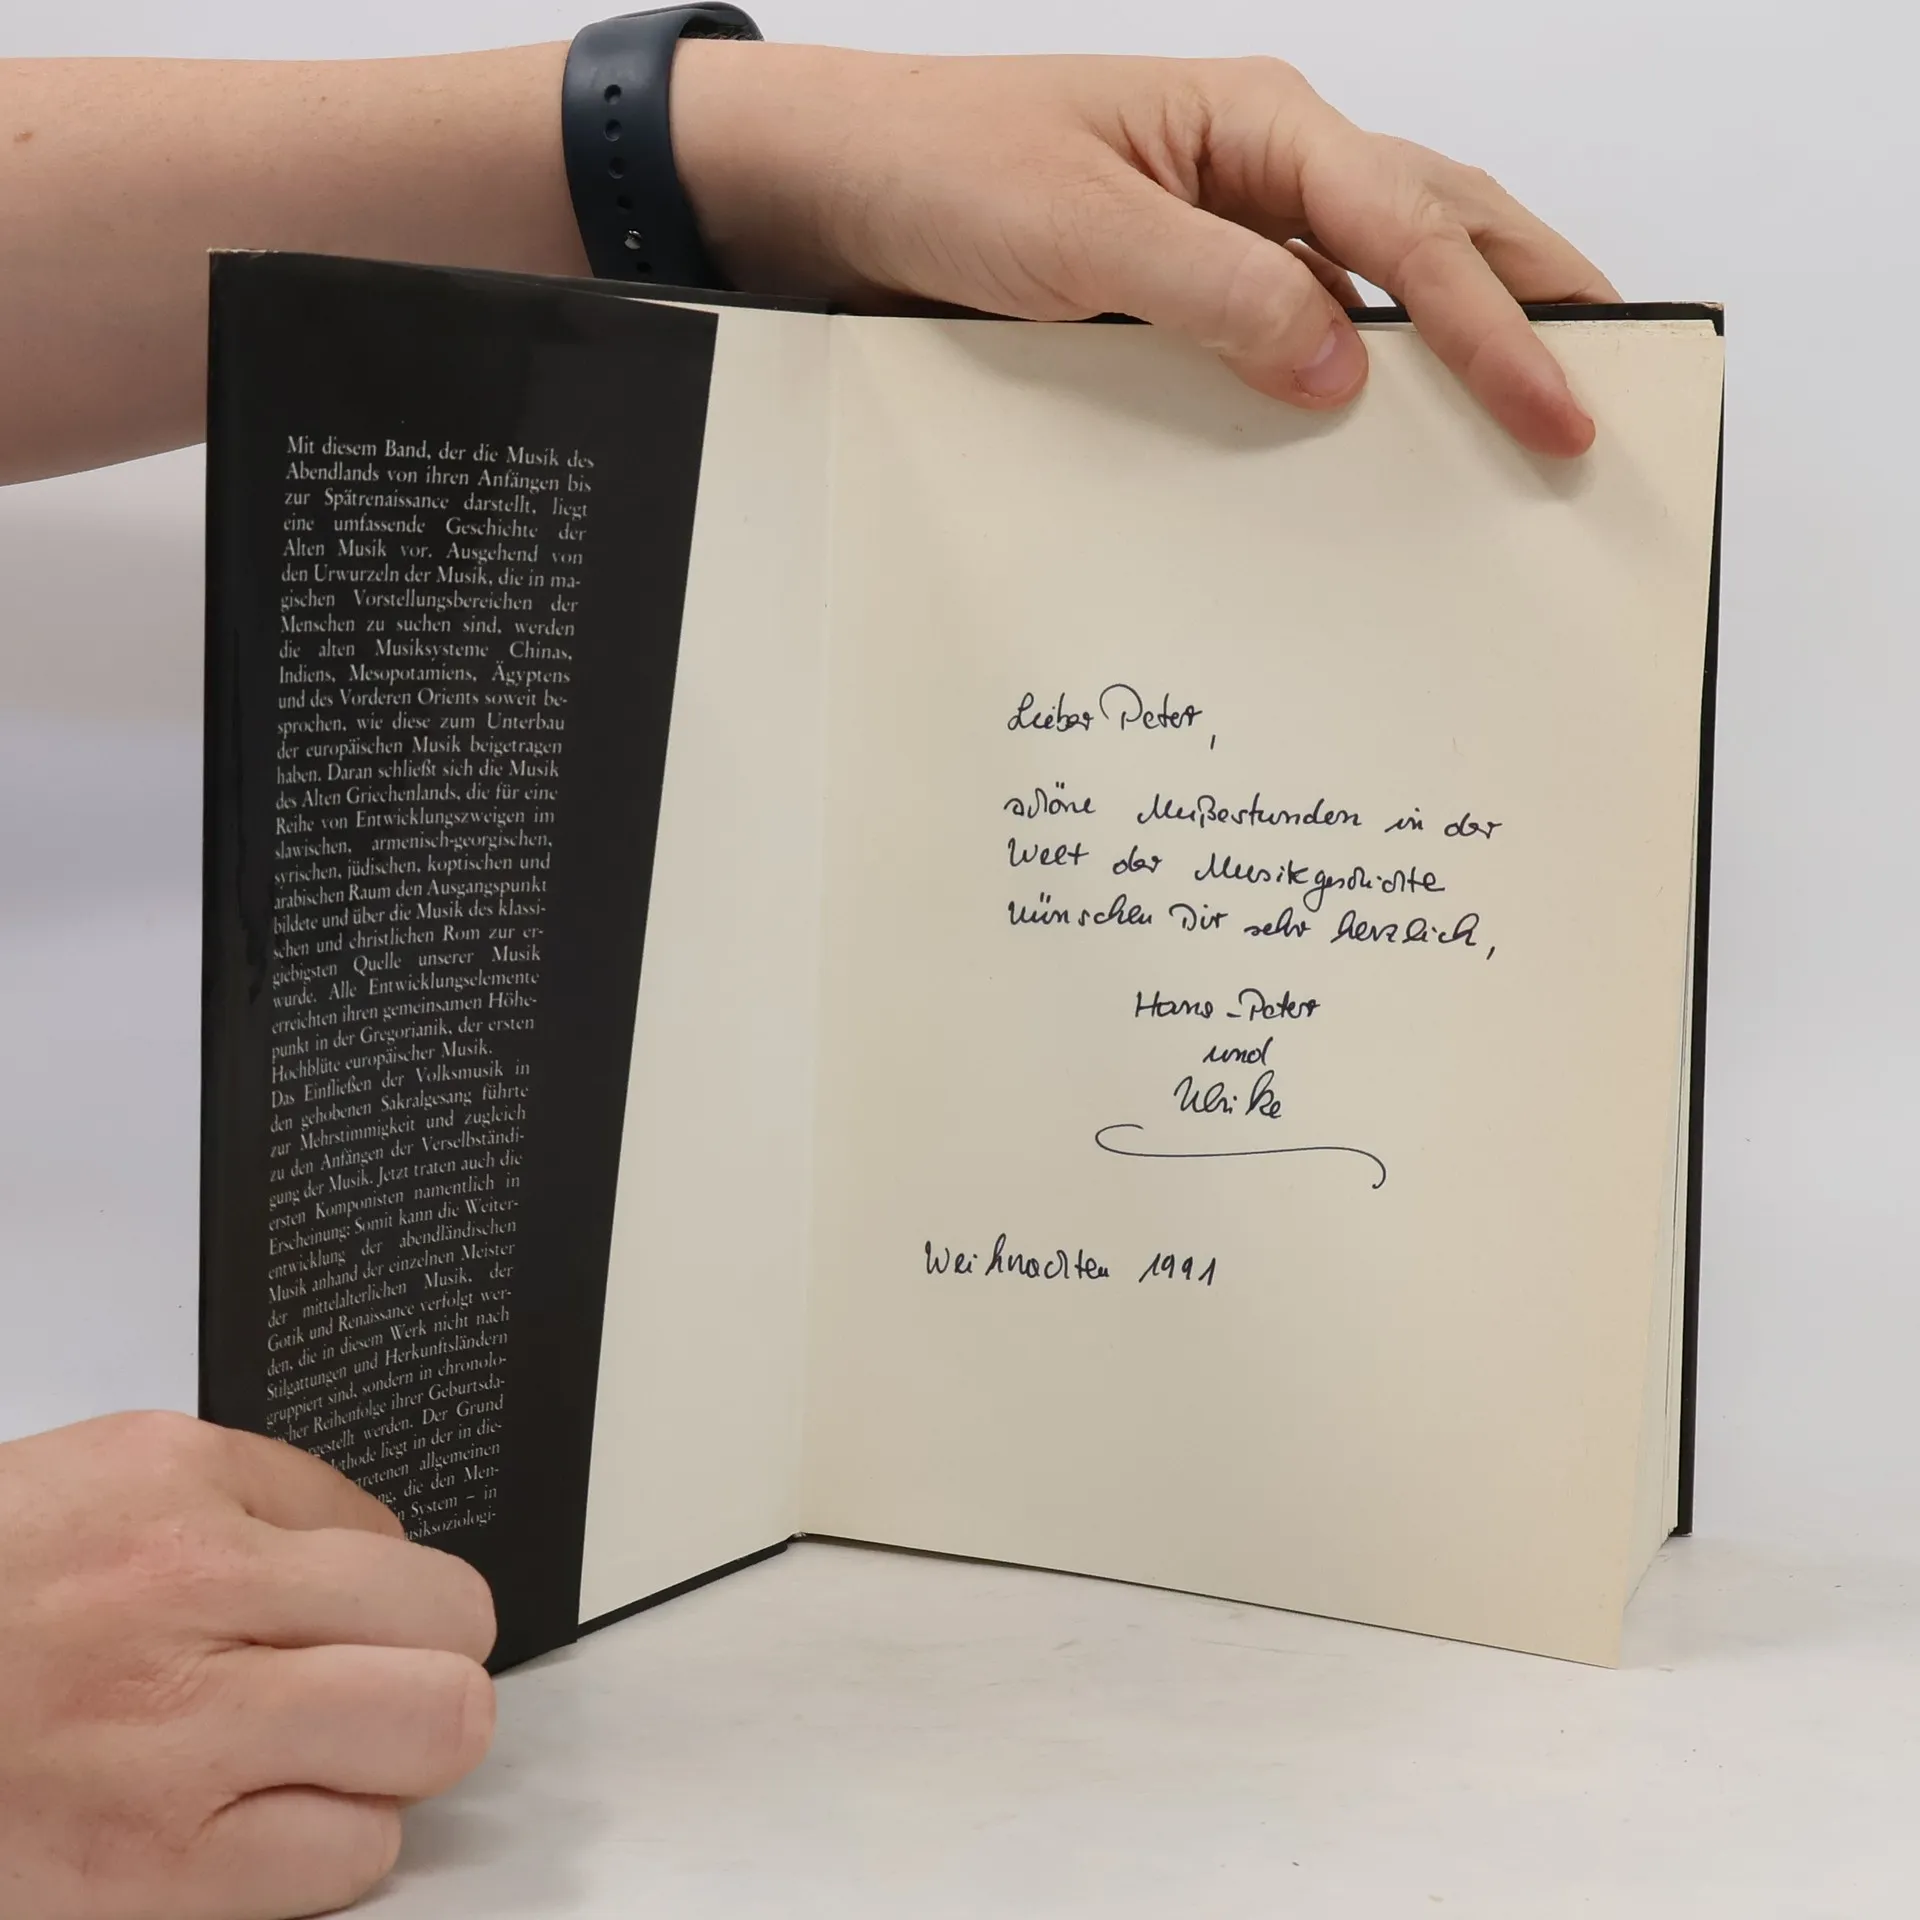 Mit diesem Band, der die Musik des
Abendlands von ihren Anfängen bis
zur Spätrenaissance darstellt, liegt
eine umfassende Geschichte der
Alten Musik vor. Ausgehend von
den Urwurzeln der Musik, die in ma-
gischen Vorstellungsbereichen der
Menschen zu suchen sind, werden
die alten Musiksysteme Chinas,
Indiens, Mesopotamiens, Ägyptens
und des Vorderen Orients soweit be-
sprochen, wie diese zum Unterbau
der europäischen Musik beigetragen
haben. Daran schließt sich die Musik
des Alten Griechenlands, die für eine
Reihe von Entwicklungszweigen im
slawischen, armenisch-georgischen,
syrischen, jüdischen, koptischen und
arabischen Raum den Ausgangspunkt
bildete und über die Musik des klassi-
schen und christlichen Rom zur er-
giebigsten Quelle unserer Musik
wurde. Alle Entwicklungselemente
erreichten ihren gemeinsamen Höhe-
punkt in der Gregorianik, der ersten
Hochblüte europäischer Musik.
Das Einfließen der Volksmusik in
den gehobenen Sakralgesang führte
zur Mehrstimmigkeit und zugleich
zu den Anfängen der Verselbständi-
gung der Musik. Jetzt traten auch die
ersten Komponisten namentlich in
Erscheinung: Somit kann die Weiter-
entwicklung der abendländischen
Musik anhand der einzelnen Meister
der mittelalterlichen Musik, der
Gotik und Renaissance verfolgt wer-
den, die in diesem Werk nicht nach
Stilgattungen und Herkunftsländern
gruppiert sind, sondern in chronolo-
scher Reihenfolge ihrer Geburtsda-
gestellt werden. Der Grund
ethode liegt in der in die-
retenen allgemeinen
ng, die den Men-
n System – in
usiksoziologi-
Lieber Peter,
schöne Mußestunden in der
Welt der Musikgeschichte
wünschen Dir sehr herzlich,
Hans-Peter
und
Ulrike
Weihnachten 1991